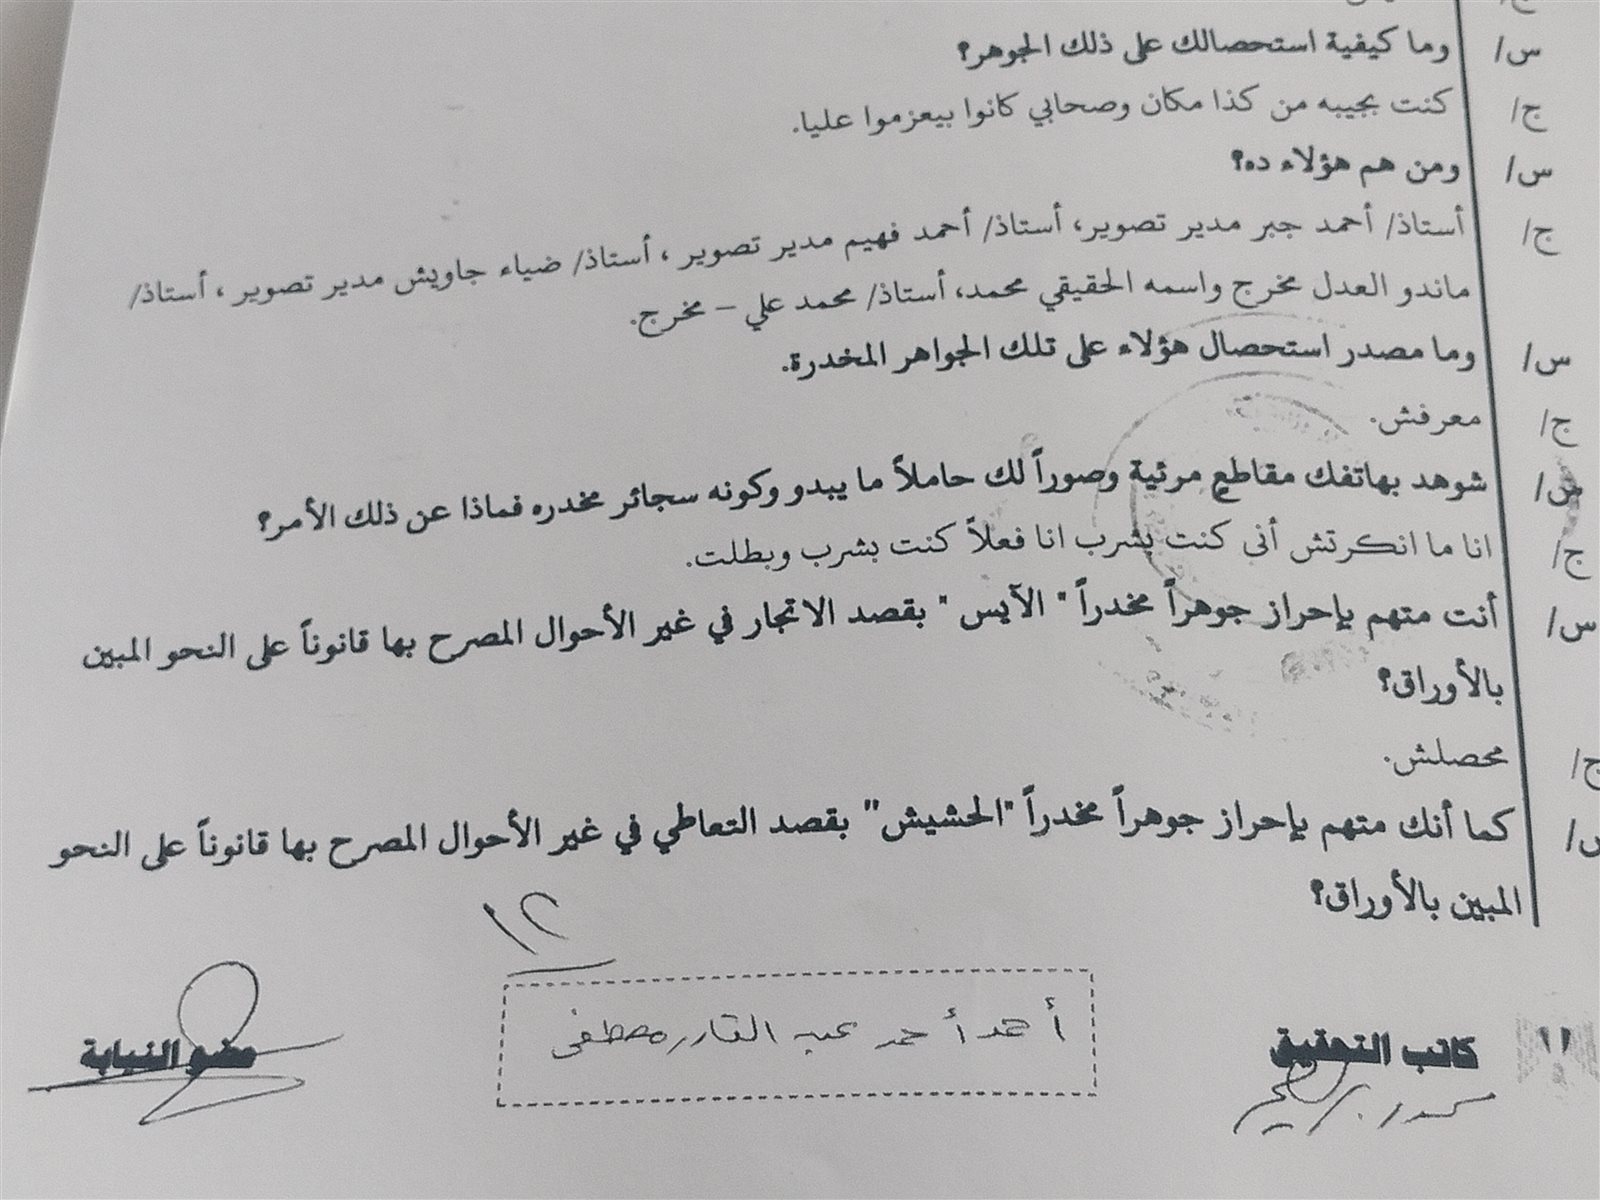 س/ وما كيفية استحصالك على ذلك الجوهر؟
ج/ كنت بجيبه من كذا مكان وصحابي كانوا بيعزموا عليا.
س/ ومن هم هؤلاء ده؟
ج/ أستاذ/ أحمد جبر مدير تصوير، أستاذ/ أحمد فهيم مدير تصوير ، أستاذ/ ضياء جاويش مدير تصوير ، أستاذ/
ماندو العدل مخرج واسمه الحقيقي محمد، أستاذ/ محمد علي – مخرج.
س/ وما مصدر استحصال هؤلاء على تلك الجواهر المخدرة.
ج/ معرفش.
س/ شوهد بهاتفك مقاطع مرئية وصوراً لك حاملاً ما يبدو وكونه سجائر مخدره فماذا عن ذلك الأمر؟
ج/ انا ما انكرتش أني كنت بشرب انا فعلاً كنت بشرب وبطلت.
س/ أنت متهم بإحراز جوهراً مخدراً " الآيس " بقصد الاتجار في غير الأحوال المصرح بها قانوناً على النحو المبين
بالأوراق؟
ج/ محصلش.
س/ كما أنك متهم بإحراز جوهراً مخدراً "الحشيش" بقصد التعاطي في غير الأحوال المصرح بها قانوناً على النحو
المبين بالأوراق؟
١٢
كاتب التحقيق
أحمد أحمد عبد القادر مصطفى
عضو النيابة